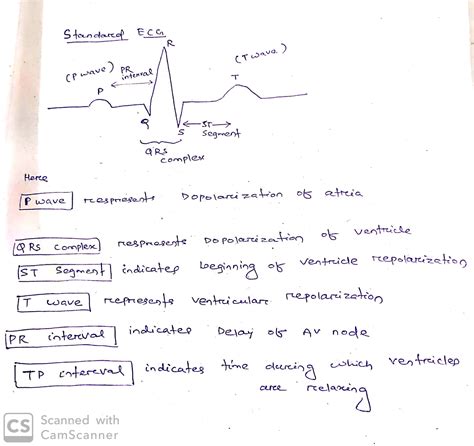 Standard ECG
R
(P wave) PR (T wave)
interval
P T
Q S ←ST→
Segment
QRS
complex
Here
P wave respresents Dopolarization of atria
QRS complex respresents Dopolarization of ventricle
ST Segment indicates beginning of ventricle repolarization
T wave represents ventricular repolarization
PR interval indicates Delay of AV node
TP interval indicates time during which ventricles
are relaxing
CS Scanned with
CamScanner